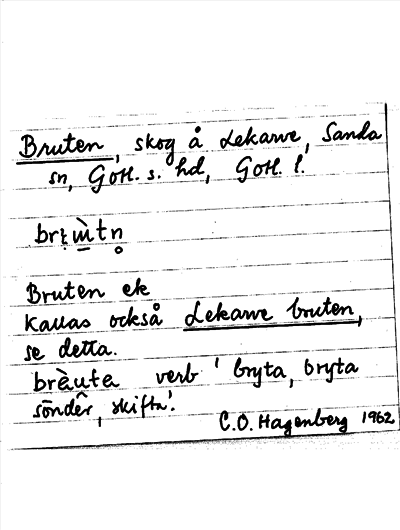 Bruten, skog å Lekarve, Sanda
sn, Gotl. s. hd, Gotl. l.
Bruten ek
kallas också Lekarve bruten,
se detta.
bràuta verb 'bryta, bryta
sönder, skifta'.
C.O. Hagenberg 1962